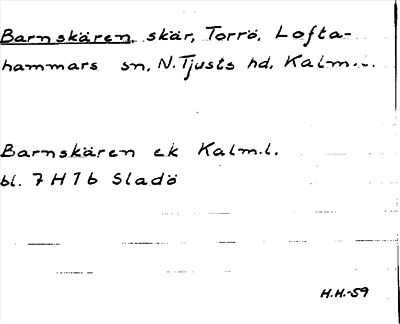 Barnskären, skär, Torrö, Lofta-
hammars sn, N. Tjusts hd, Kalm.l.
Barnskären ek Kalm.l.
bl. 7 H 7 b Sladö
H.H.-59